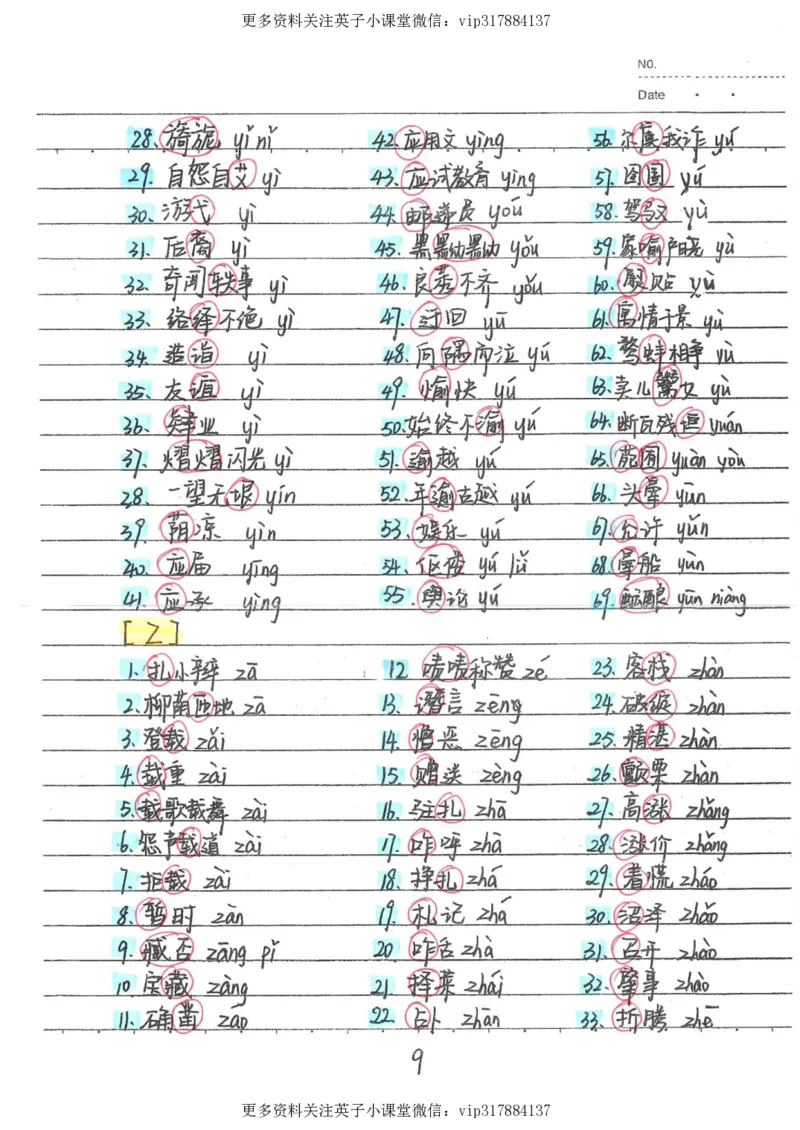 更多资料关注英子小课堂微信：vip317884137
NO.
Date
28、旖旎 yǐ nǐ
29、自怨自艾 yì
30、游弋 yì
31、后裔 yì
32、奇闻轶事 yì
33、络绎不绝 yì
34、造诣 yì
35、友谊 yì
36、肄业 yì
37、熠熠闪光 yì
38、一望无垠 yín
39、荫凉 yìn
40、应届 yīng
41、应承 yìng
42、应用文 yìng
43、应试教育 yìng
44、邮递员 yóu
45、黑黝黝 yǒu
46、良莠不齐 yǒu
47、迂回 yū
48、向隅而泣 yú
49、愉快 yú
50、始终不渝 yú
51、逾越 yú
52、年逾古稀 yú
53、娱乐 yú
54、伛偻 yǔ lǚ
55、舆论 yú
56、尔虞我诈 yú
57、囹圄 yǔ
58、驾驭 yù
59、家喻户晓 yù
60、熨贴 yù
61、寓情于景 yù
62、鹬蚌相争 yù
63、卖儿鬻女 yù
64、断瓦残垣 yuán
65、苑囿 yuàn yòu
66、头晕 yūn
67、允许 yǔn
68、晕船 yùn
69、酝酿 yùn niàng
[Z]
1、扎小辫 zā
2、柳荫匝地 zā
3、登载 zǎi
4、载重 zài
5、载歌载舞 zài
6、怨声载道 zài
7、拒载 zài
8、暂时 zàn
9、臧否 zāng pǐ
10、宝藏 zàng
11、确凿 záo
12、啧啧称赞 zé
13、谮言 zèng
14、憎恶 zēng
15、赠送 zèng
16、驻扎 zhā
17、咋呼 zhā
18、挣扎 zhá
19、札记 zhá
20、咋舌 zhà
21、择菜 zhái
22、占卜 zhān
23、客栈 zhàn
24、破绽 zhàn
25、精湛 zhàn
26、颤栗 zhàn
27、高涨 zhǎng
28、涨价 zhǎng
29、着慌 zháo
30、沼泽 zhǎo
31、召开 zhào
32、肇事 zhào
33、折腾 zhē
9
更多资料关注英子小课堂微信：vip317884137